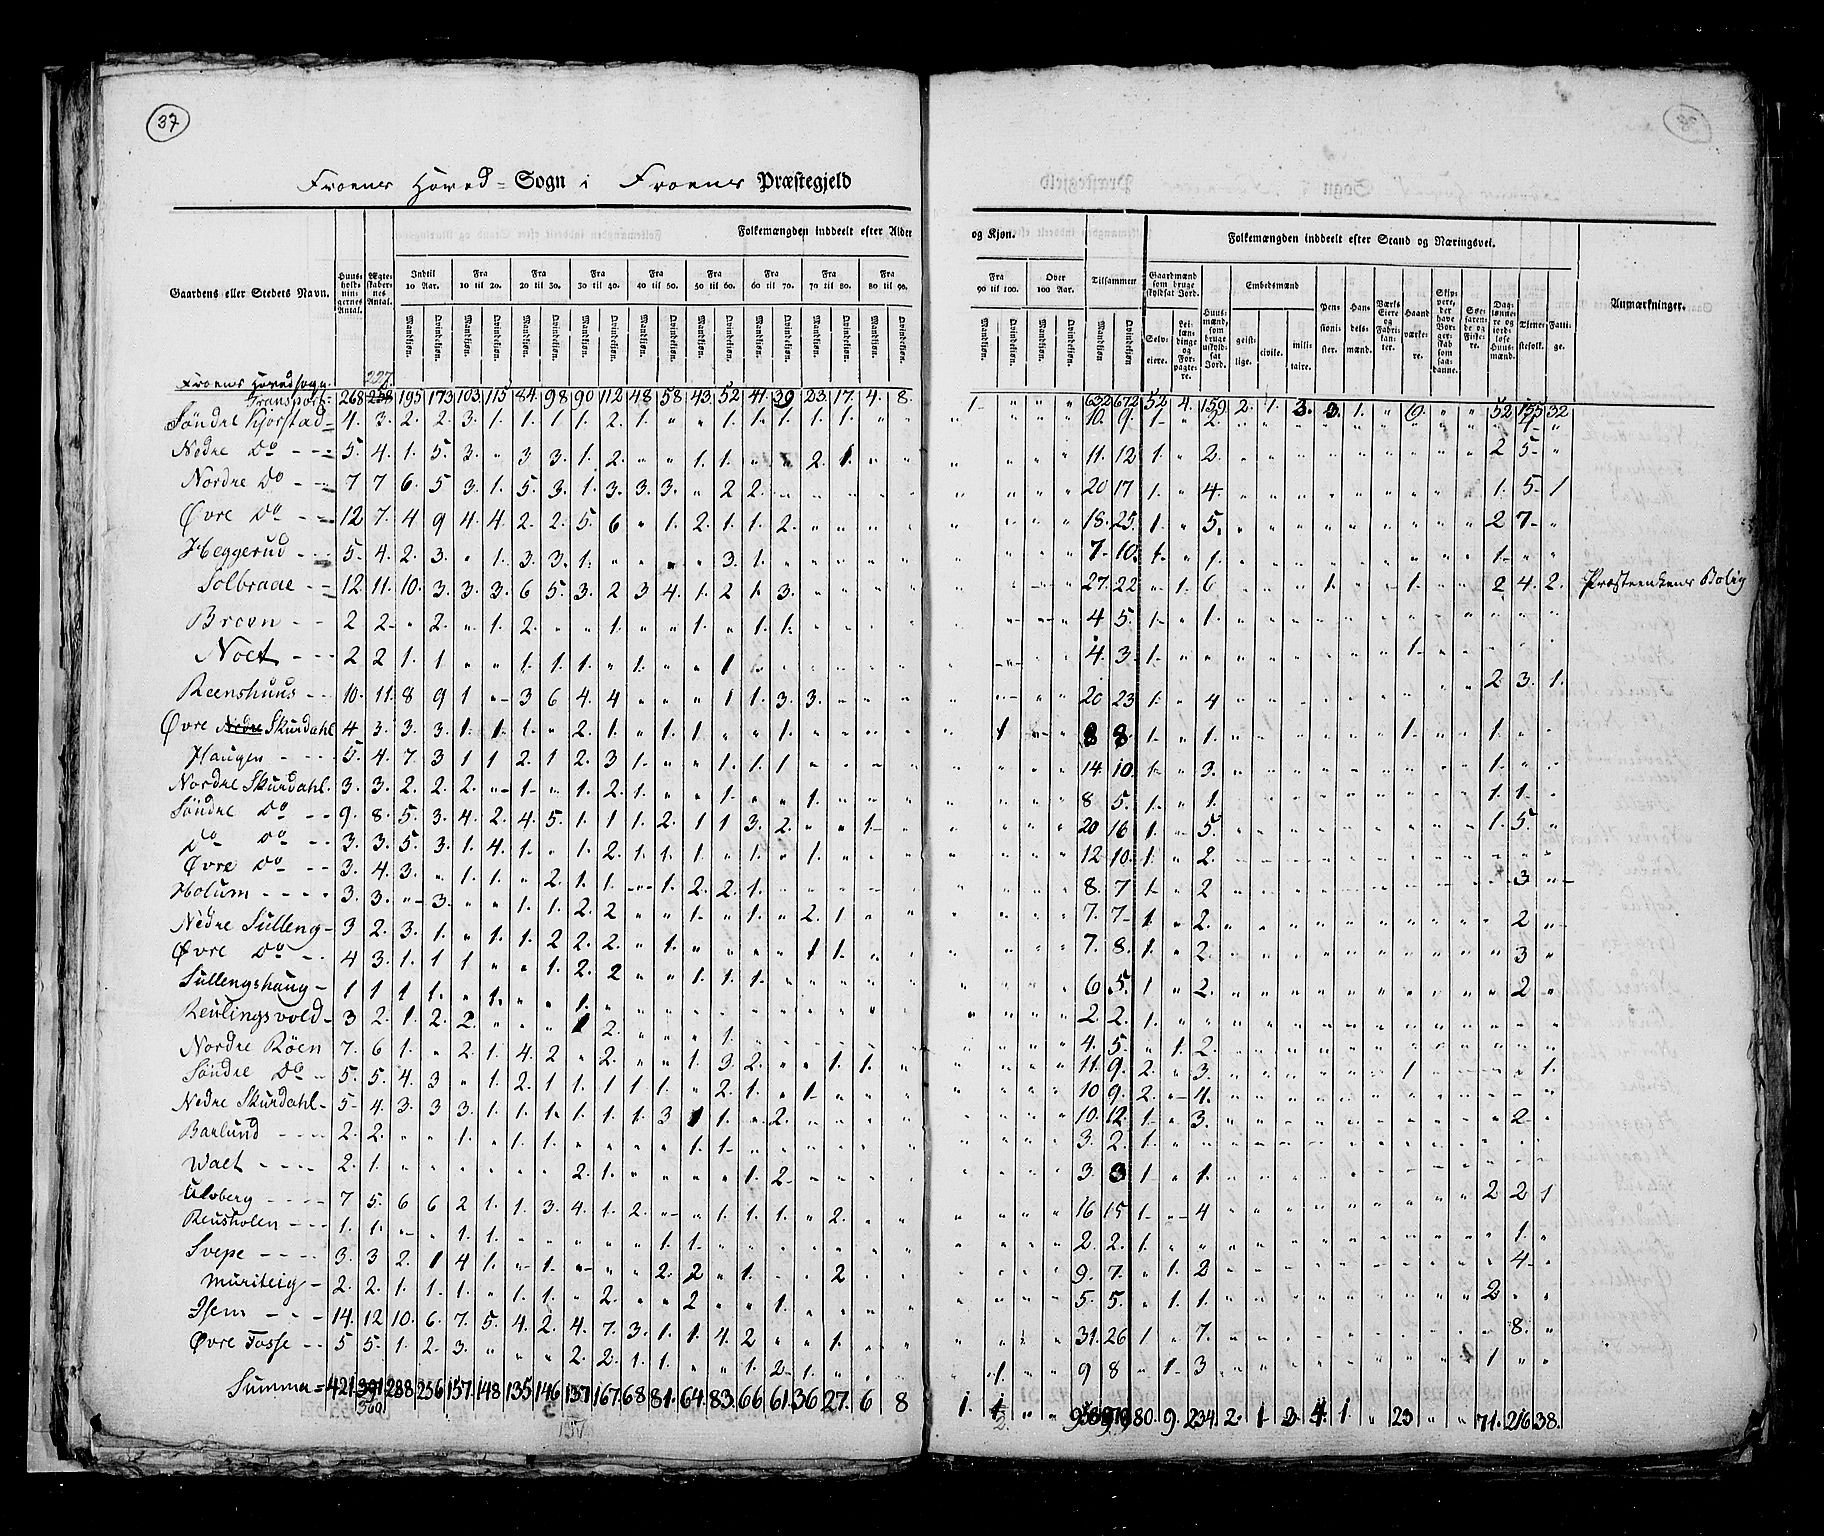 37
Froens Hoved - Sogn i Froens Præstegjeld
Folkemængden inddeelt efter Alder og Kjøn.
Folkemængden inddeelt efter Stand og Næringsvei.
Gaardens eller Steders Navn.
Huusholdningernes Antal.
Ægteskabernes Antal.
Indtil 10 Aar.
Fra 10 til 20.
Fra 20 til 30.
Fra 30 til 40.
Fra 40 til 50.
Fra 50 til 60.
Fra 60 til 70.
Fra 70 til 80.
Fra 80 til 90.
Fra 90 til 100.
Over 100 Aar.
Tilsammen
Mandkjøn. Qvindekjøn.
Gaardmænd som bruge skyldsat Jord.
Selveiere.
Leilændinge og Forpagtere.
Huusmænd, som bruge uskyldsat Jord.
Embedsmænd
geistlige. civile. militaire.
Pensionister.
Handelsmænd.
Værks Eiere og Fabrikanter.
Haandværkere.
Skippere, der have Borgerskab som saadanne.
Søefarende og Fiskere.
Daglønnere og jordløse Huusmænd.
Tjenestefolk.
Fattige.
Anmærkninger.
Froens Hovedsogn
Transport = 268 258 195 173 103 115 84 98 90 112 48 58 43 52 41 39 23 17 4 8 1 632 672 52 4 159 2 1 3 3 1 52 155 32
Søndre Kjorstad 4 3 2 2 3 1 1 1 1 2 1 " " 1 1 1 1 1 1 " " 10 9 1 " 2 4
Nedre Do 5 4 1 5 3 " 3 3 1 2 " " 1 1 " " 2 1 " " 11 12 1 " 2 2 5
Nordre Do 7 7 6 5 3 1 5 3 1 3 3 3 " 2 2 20 17 1 " 4 1 5 1
Øvre Do 12 7 4 9 4 4 2 2 5 6 " 1 2 1 1 2 18 25 1 " 5 2 7
Heggerud 5 4 2 3 " 1 3 3 1 " " " " 3 1 7 10 1 " 1 1
Solbraae 12 11 10 3 3 3 6 5 3 2 3 4 1 2 1 3 27 22 " 1 6 1 1 2 4 2 Præsteenkens Bolig
Broen 2 2 " 2 " 1 2 " " 1 " " 1 " 1 1 4 5 1 " 1
Noet 2 2 1 1 " " 1 1 1 " 1 " " 1 4 3 1 1
Reenshuus 10 11 8 9 1 " 3 6 4 4 " " " 1 1 3 3 20 23 1 " 4 2 3 1
Øvre Nedre Skurdahl 4 3 3 3 1 1 1 " 2 1 " 1 1 " " 1 1 8 8 1 " 1 1 1
Haugen 5 4 7 3 1 1 2 1 2 3 1 " " 1 1 1 14 10 1 " 3 1
Nordre Skurdahl 3 3 2 2 2 " 1 " 1 2 1 " " 1 " " 1 8 5 1 " 1 1 1
Søndre Do 9 8 5 3 4 2 4 5 1 1 1 2 1 1 3 2 " " 1 20 16 1 " 5 1 5
Do Do 3 3 5 3 1 4 1 " 1 2 1 1 1 " 1 " 1 12 10 1 " 2
Øvre Do 3 4 3 " 1 1 " 2 1 1 " 1 2 2 1 8 7 1 " 2 3
Holum 3 3 " 3 " " 1 1 2 2 " " 1 " 1 " 2 1 7 7 1 " 2 2
Nedre Sulleng 3 2 3 1 " 1 1 2 2 2 " 1 " " " " 1 1 7 8 1 " 2 3
Øvre Do 4 3 1 1 1 " " 1 2 2 " " 1 1 1 6 5 1 " 2 2
Sullengshaug 1 1 1 1 " 1 " " 1 2 2 1
Reulingsvold 3 2 1 2 2 " " " 1 2 " " " 1 4 5 " 1 2
Nordre Röen 7 6 1 " 2 1 4 2 " 2 " " 1 3 2 " " 1 1 11 9 2 " 3 1 1
Søndre Do 5 5 4 3 " 1 2 1 1 1 1 1 " 2 1 " 1 10 9 2 " 4
Nedre Skurdahl 5 4 3 3 3 1 1 1 1 1 1 3 1 1 " 2 10 12 1 " 3 2
Barlund 2 2 " " 1 " 1 1 " " " " 1 1 3 2 1
Walt 2 1 " " " " " " 2 1 " " " " 1 2 3 3 1 " 1
Ulvberg 7 5 6 6 2 1 1 3 4 1 2 " " 1 1 1 1 " 2 16 15 1 " 4 2 2 1
Reusholen 1 1 " " 1 1 " " " " " 1 1 2 2 1 1
Svepe 3 3 2 1 4 1 " 1 " " " 2 2 " 1 " " 2 9 7 " 1 2 4
Muriteig 2 2 1 1 1 " 1 1 " 2 " " 2 " " 1 5 5 " 1 1 2
Isem 14 12 10 6 7 5 4 2 4 7 3 1 1 4 2 " " 1 31 26 1 " 7 8
Øvre Fosse 5 5 1 2 3 " " " 2 2 1 1 " " 1 2 1 1 9 8 " 1 3 1
Summa = 421 391 288 256 157 148 135 146 137 167 68 81 64 83 66 61 36 27 6 8 1 1 80 9 234 2 1 3 4 1 " 23 " " 71 216 38